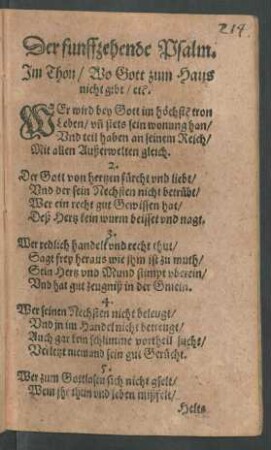 214.
Der funffzehende Psalm.
Im Thon / Wo Gott zum Haus
nicht gibt / etc.
WEr wird bey Gott im höchstē tron
Leben / vñ stets sein wonung han /
Vnd teil haben an seinem Reich /
Mit allen Außerwelten gleich.
2.
Der Gott von hertzen fürcht vnd liebt /
Vnd der sein Nechsten nicht betrübt /
Wer ein recht gut Gewissen hat /
Deß Hertz kein wurm beisset vnd nagt.
3.
Wer redlich handelt vnd recht thut /
Sagt frey heraus wie jhm ist zu muth /
Sein Hertz vnd Mund stimpt vberein /
Vnd hat gut zeugniß in der Gmein.
4.
Wer seinen Nechsten nicht beleugt /
Vnd jn im Handel nicht betreugt /
Auch gar kein schlimme vortheil sucht /
Verletzt niemand sein gut Gerücht.
5.
Wer zum Gottlosen sich nicht gselt /
Wem jhr thun vnd leben mißfelt /
Helts